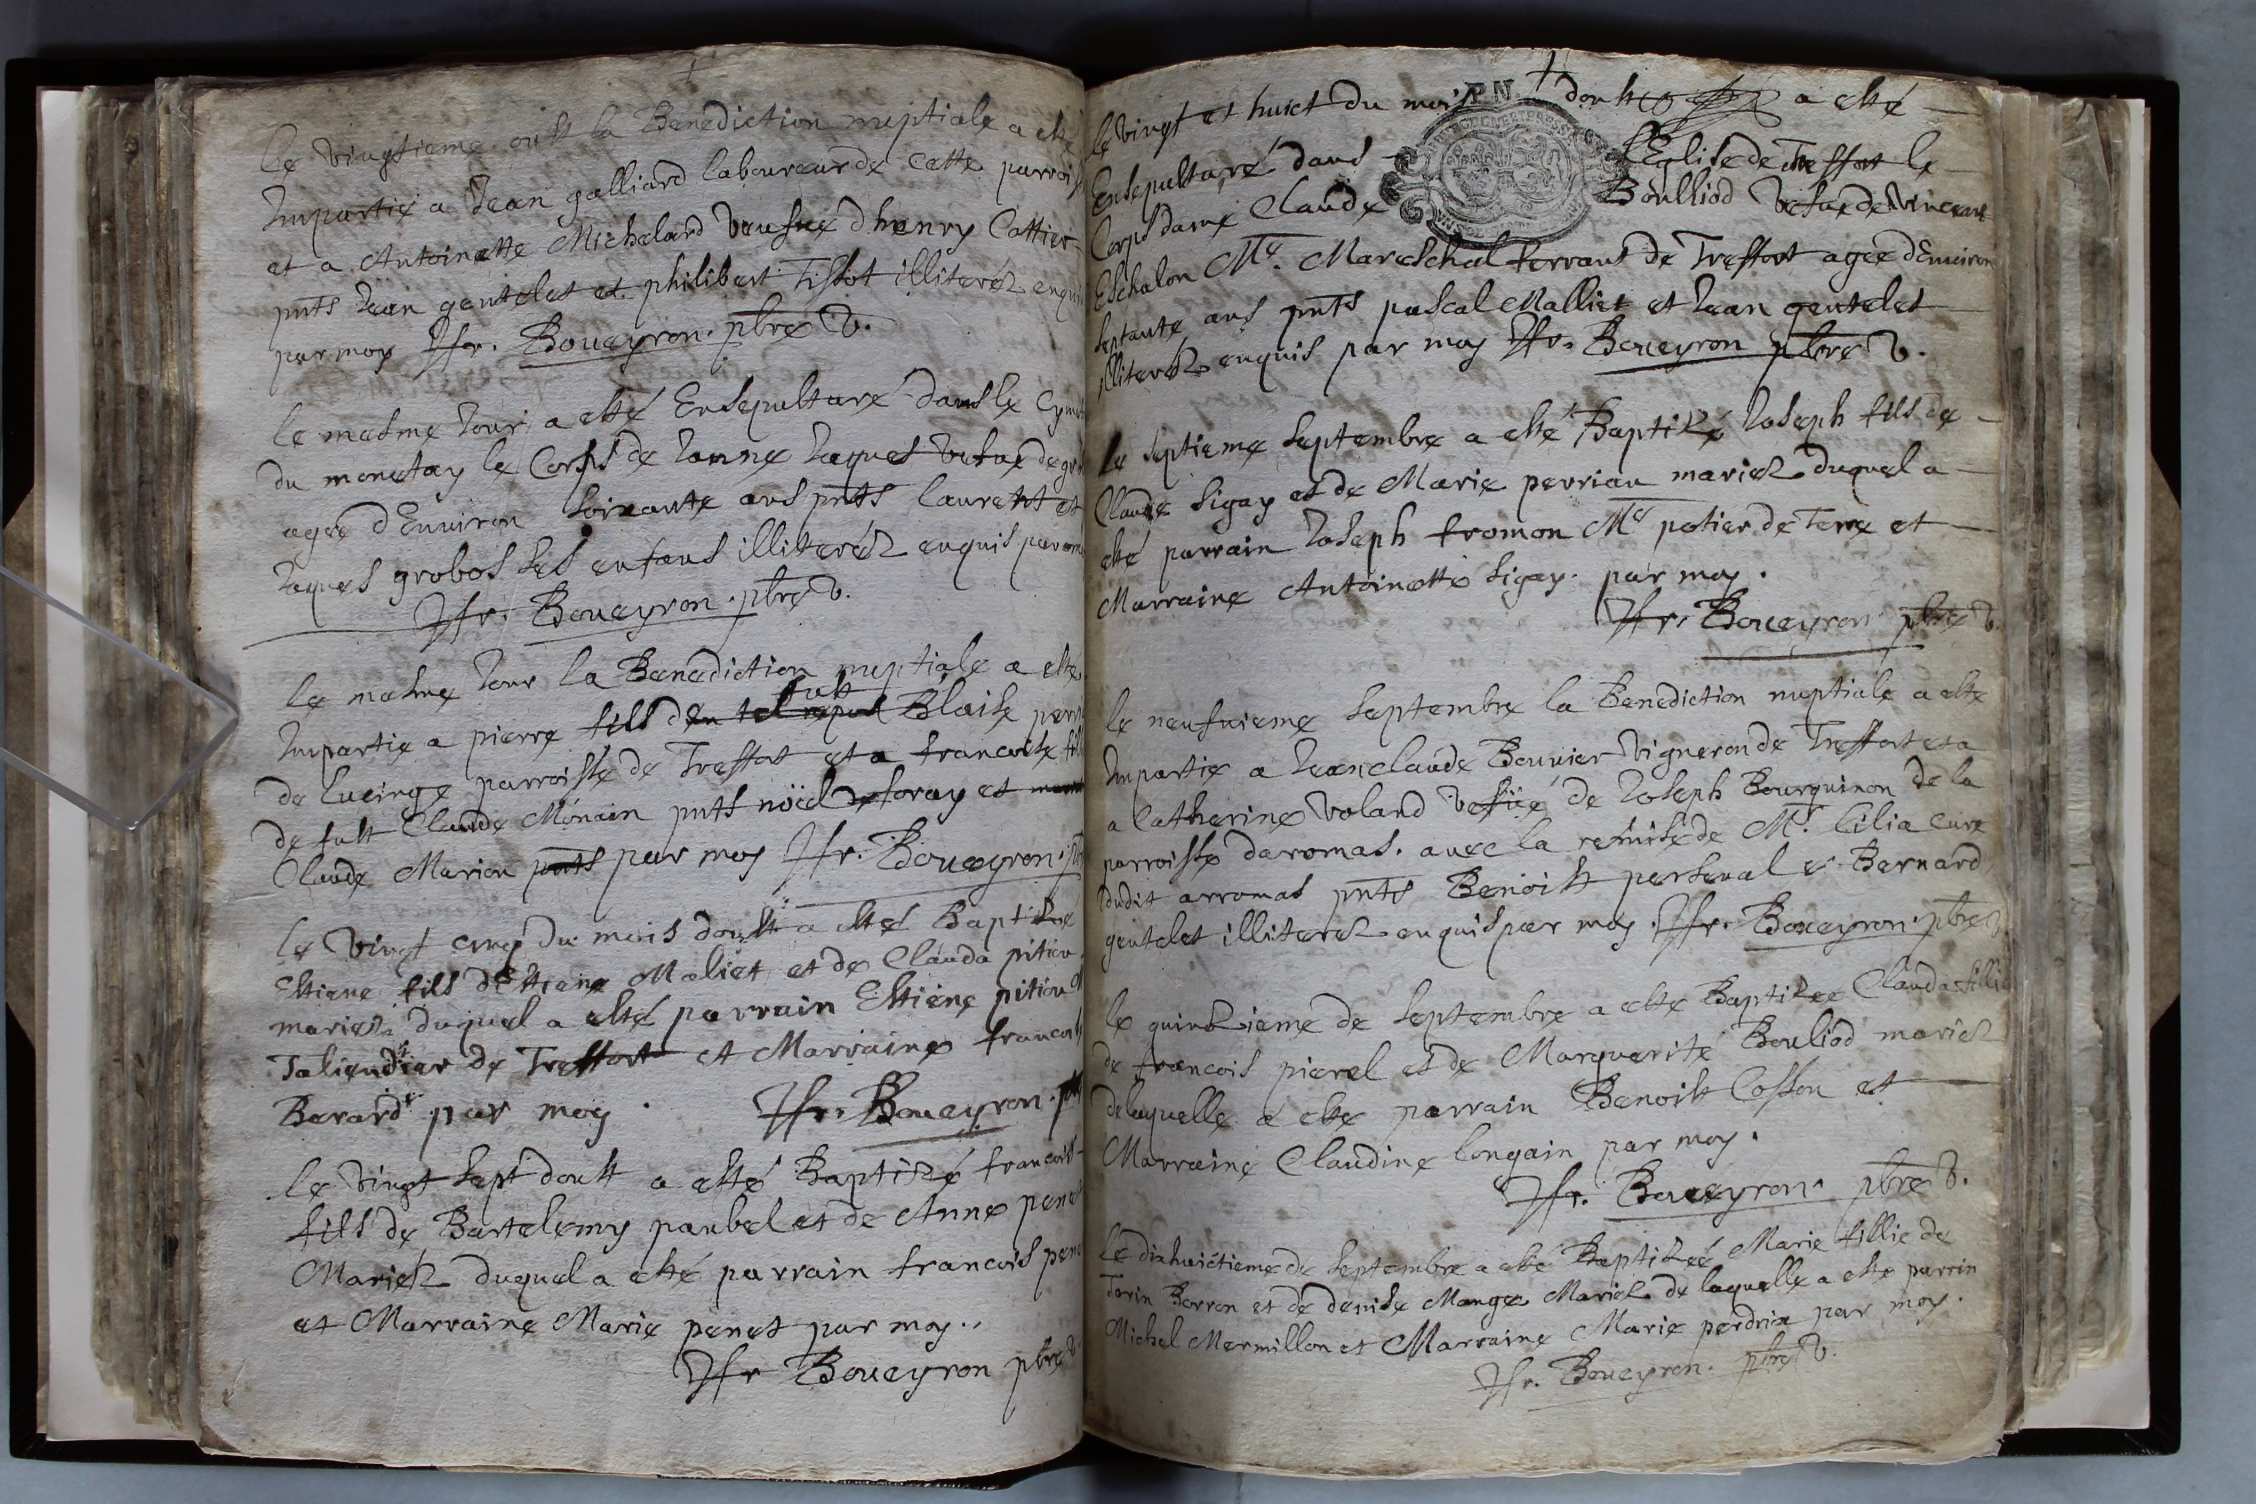 le vingtieme oust la Benediction nuptiale a esté
Impartie a Jean galliard laboureur de cette parroiss
et a Antoinette Michelard veufue dhenry Cottier
pnts Jean gentelet et philibert Tissot illiterés enquis
par moy Jfr. Boueyron. pbre V.
le mesme Jour a esté Ensepulturé dans le Cym
du monetay le Corps de Janne Jaquet vefue de gr
agee dEnuiron soixante ans pnts laurent et
Jaques grobos ses enfans illiterés enquis par moy
Jfr. Boueyron. pbre V.
le mesme Jour la Benediction nuptiale a esté
Impartie a pierre fils fust Blaise perr
de lucinge parroisse de Treffort et a francoise fill
de fust Claude Monain pnts nöel deforay et
Claude Marion pnts par moy Jfr. Boueyron. p
le vingt cinq du mois doust a estés Baptisé
Estiene fils dEstiene Maliet et de Clauda pition
mariez duquel a esté parrain Estiene pition
Taliendier de Treffort et Marraine francois
Berard par moy. Jfr. Boueyron. p
le vingt sept doust a esté Baptizé francois
fils de Bartelemy paubel et de Anne penet
Mariez duquel a esté parrain francois pene
et Marraine Marie penet par moy..
Jfr Boueyron pbre V
le vingt et huict du mois doust a esté
Ensepulturé dans lEglise de Treffort le
Corps dame Claude Boulliod vefue de vincent
Eschalon Me. Mareschal ferrant de Treffort agee dEnuiron
septante ans pnts pascal Malliet et Jean gentelet
illiterés enquis par moy Jfr. Boueyron pbre V.
le septieme septembre a esté Baptizé Joseph fils de
Claude sigay et de Marie perrian mariez duquel a
esté parrain Joseph fromon Me potier de Terre et
Marraine Antoinette sigay. par moy.
Jfr. Boueyron pbre V.
le neufuieme septembre la Benediction nuptiale a esté
Impartie a Jeanclaude Bouuier vigneron de Treffort et a
a Catherine voland vefüe de Joseph Bourquinon de la
parroisse daromas. auec la remise de Mr. Cilia cure
dudit arromas pnts Benoist perseual & Bernard
gentelet illiterez enquis par moy. Jfr. Boueyron. pbre V
le quinzieme de septembre a esté Baptizee Clauda fillie
de francois pierel et de Marguerite Bouliod mariez
delaquelle a esté parrain Benoist Cosson et
Marraine Claudine longain par moy.
Jfr. Boueyron. pbre V.
Le dixhuictieme de septembre a esté Baptizeé Marie fillie de
Torin Borron et de denise Monge Mariez de laquelle a esté parrin
Michel Mermillon et Marraine Marie perdrix par moy.
Jfr. Boueyron. pbre V.